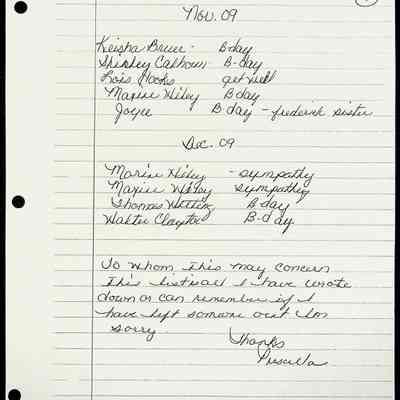 Nov. 09
Keisha Bruce - B day
Shirley Calhoun - B-day
Lois Hooks get well
Maxine Wiley B day
Joyce B day - frederick sister
Dec. 09
Maxine Wiley - sympathy
Maxine Wiley sympathy
Thomas B day
Walter Clayton B-day
To whom this may concern
This list is all I have wrote
down or can remember if I
have left someone out I'm
sorry
Thanks
Priscilla